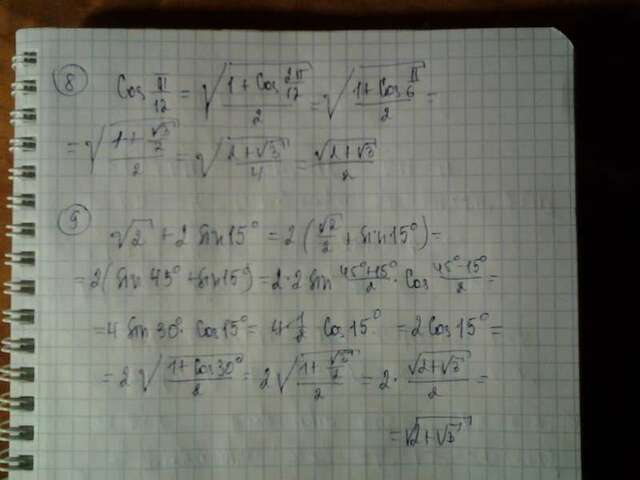 8 cos π/12 = √((1 + cos 2π/12)/2) = √((1 + cos π/6)/2) =
= √((1 + √3/2)/2) = √((2 + √3)/4) = √(2 + √3)/2
9 √2 + 2 sin 15° = 2 (√2/2 + sin 15°) =
= 2 (sin 45° + sin 15°) = 2 · 2 sin (45° + 15°)/2 · cos (45° - 15°)/2 =
= 4 sin 30° · cos 15° = 4 · 1/2 cos 15° = 2 cos 15° =
= 2 √((1 + cos 30°)/2) = 2 √((1 + √3/2)/2) = 2 · √(2 + √3)/2 =
= √(2 + √3)